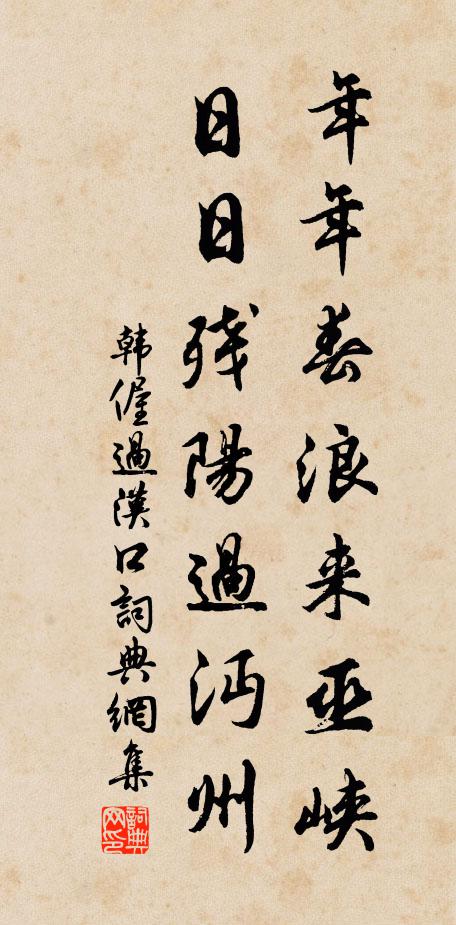 年年春浪来巫峡
日日残陽過沔州
韩偓過漢口詞典網集
詞典网印